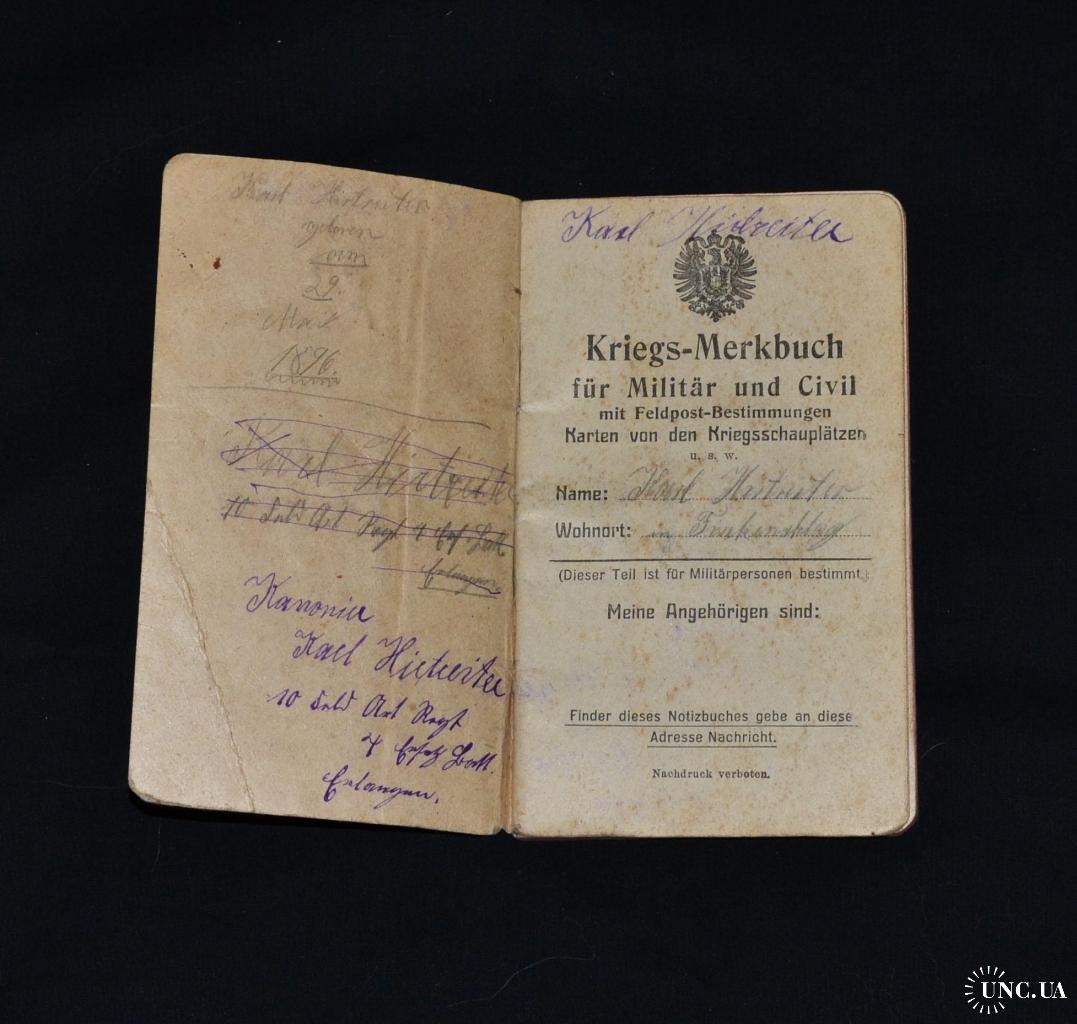 Karl Hirtreiter
geboren
am
29.
Mai
1896
Karl Hirtreiter
10 Feld Art Regt 4 Ers Batt
Erlangen
Kanonier
Karl Hirtreiter
10 Feld Art Regt
4 Ersatz Batt.
Erlangen.
Karl Hirtreiter
Kriegs-Merkbuch
für Militär und Civil
mit Feldpost-Bestimmungen
Karten von den Kriegsschauplätzen
u. s. w.
Name: Karl Hirtreiter
Wohnort: in
(Dieser Teil ist für Militärpersonen bestimmt.)
Meine Angehörigen sind:
Finder dieses Notizbuches gebe an diese
Adresse Nachricht.
Nachdruck verboten.
UNC.UA